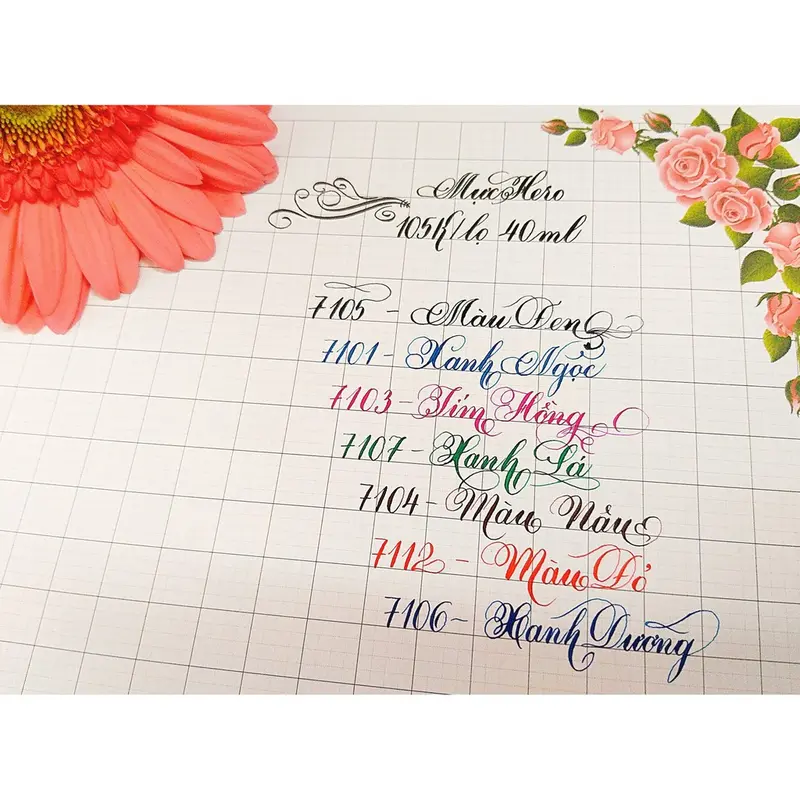 Mực Hero
105K/lọ 40ml
7105 - Màu Đen
7101 - Xanh Ngọc
7103 - Tím Hồng
7107 - Xanh Lá
7104 - Màu Nâu
7112 - Màu Đỏ
7106 - Xanh Dương